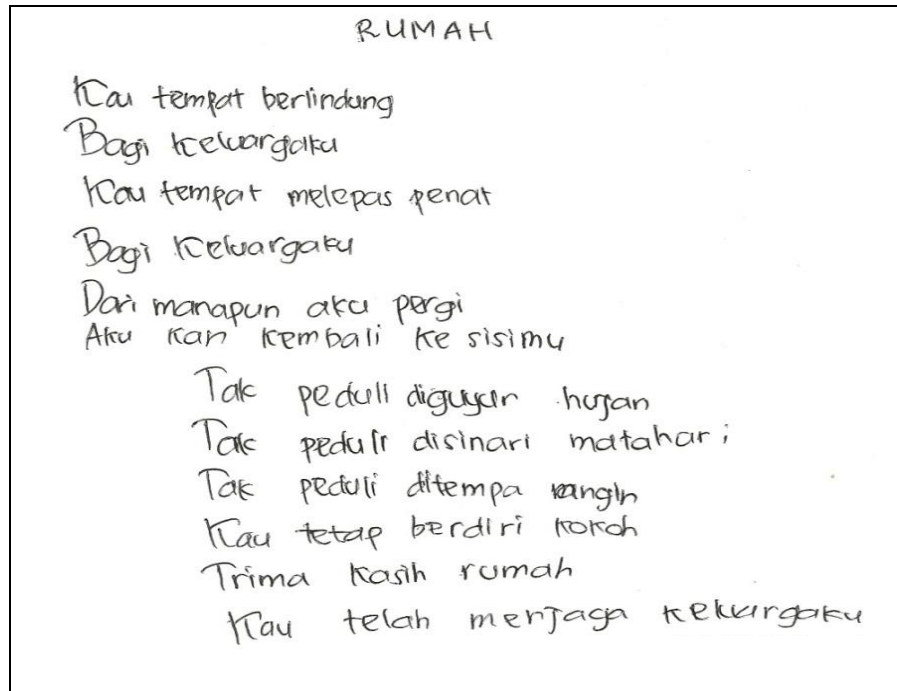 RUMAH
Kau tempat berlindung
Bagi keluargaku
Kau tempat melepas penat
Bagi keluargaku
Dari manapun aku pergi
Aku kan kembali ke sisimu
Tak peduli diguyur hujan
Tak peduli disinari matahari
Tak peduli ditempa angin
Kau tetap berdiri kokoh
Trima kasih rumah
Kau telah menjaga keluargaku